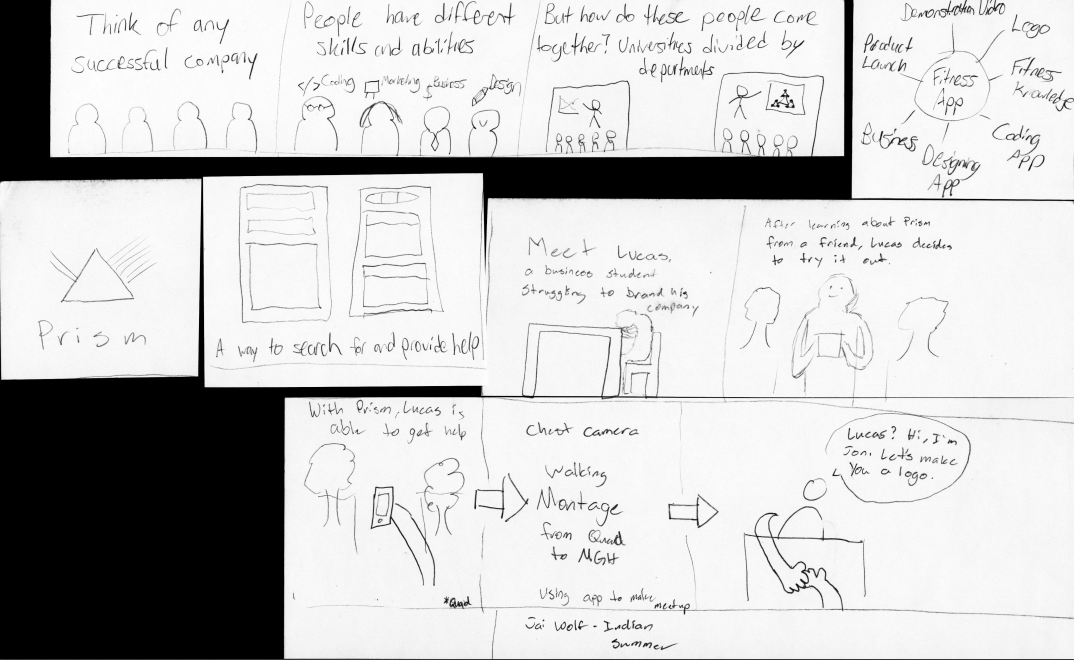 Think of any
successful company
People have different
skills and abilities
</> Coding
Marketing
$ Business
Design
But how do these people come
together? Universities divided by
departments
Demonstration Video
Logo
Product
Launch
Fitness
App
Fitness
Knowledge
Business
Designing
App
Coding
App
Prism
A way to search for and provide help
Meet Lucas,
a business student
struggling to brand his
company
After learning about Prism
from a friend, Lucas decides
to try it out.
With Prism, Lucas is
able to get help
*Quad
Chest Camera
Walking
Montage
from Quad
to MGH
Using app to make
meetup
Jai Wolf - Indian
Summer
Lucas? Hi, I'm
Jon. Let's make
you a logo.